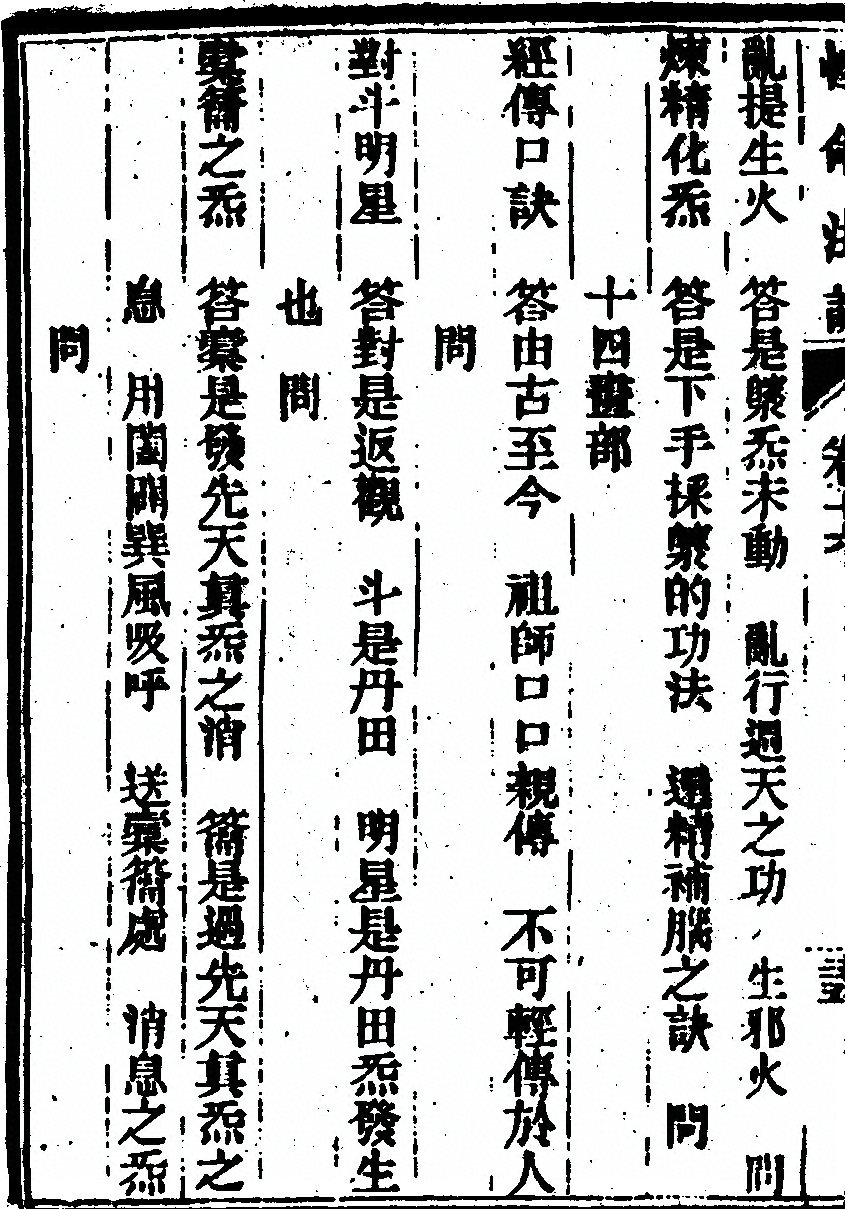 亂提生火　答是藥炁未動　亂行週天之功　生邪火　問
煉精化炁　答是下手採藥的功法　還精補腦之訣　問
十四部
經傳口訣　答由古至今　祖師口口親傳　不可輕傳於人
問
對斗明星　答對是返觀　斗是丹田　明星是丹田炁發生
也　問
橐籥之炁　答橐是發先天真炁之消　籥是過先天真炁之
息　用闔闢巽風吸呼　送橐籥處　消息之炁
問